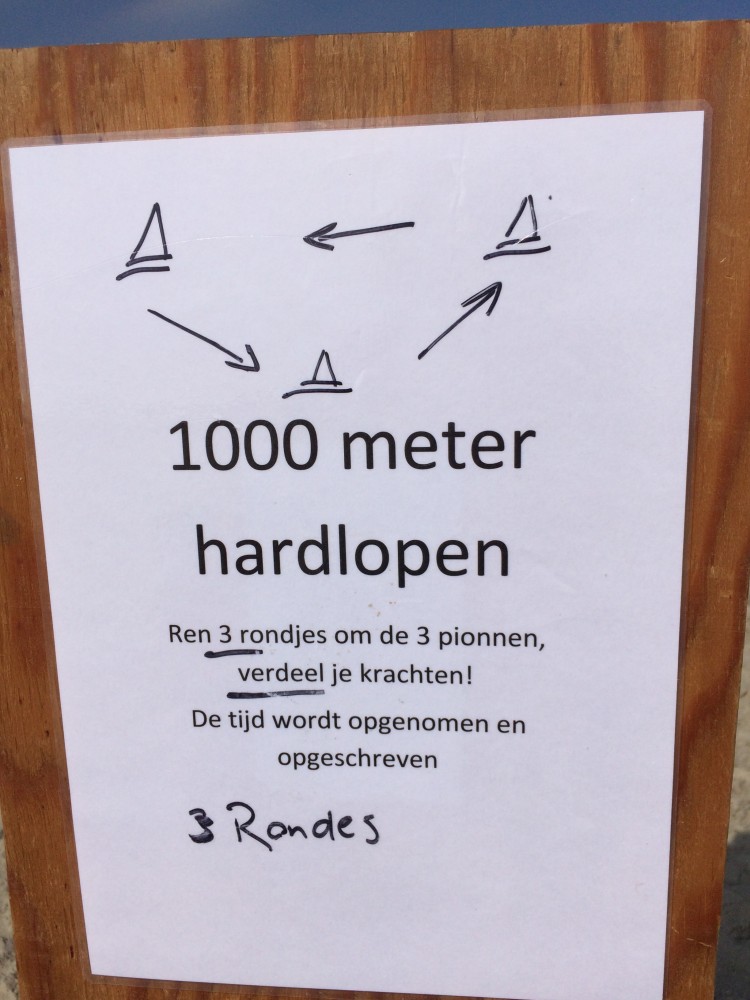 1000 meter
hardlopen
Ren 3 rondjes om de 3 pionnen,
verdeel je krachten!
De tijd wordt opgenomen en
opgeschreven
3 Rondes